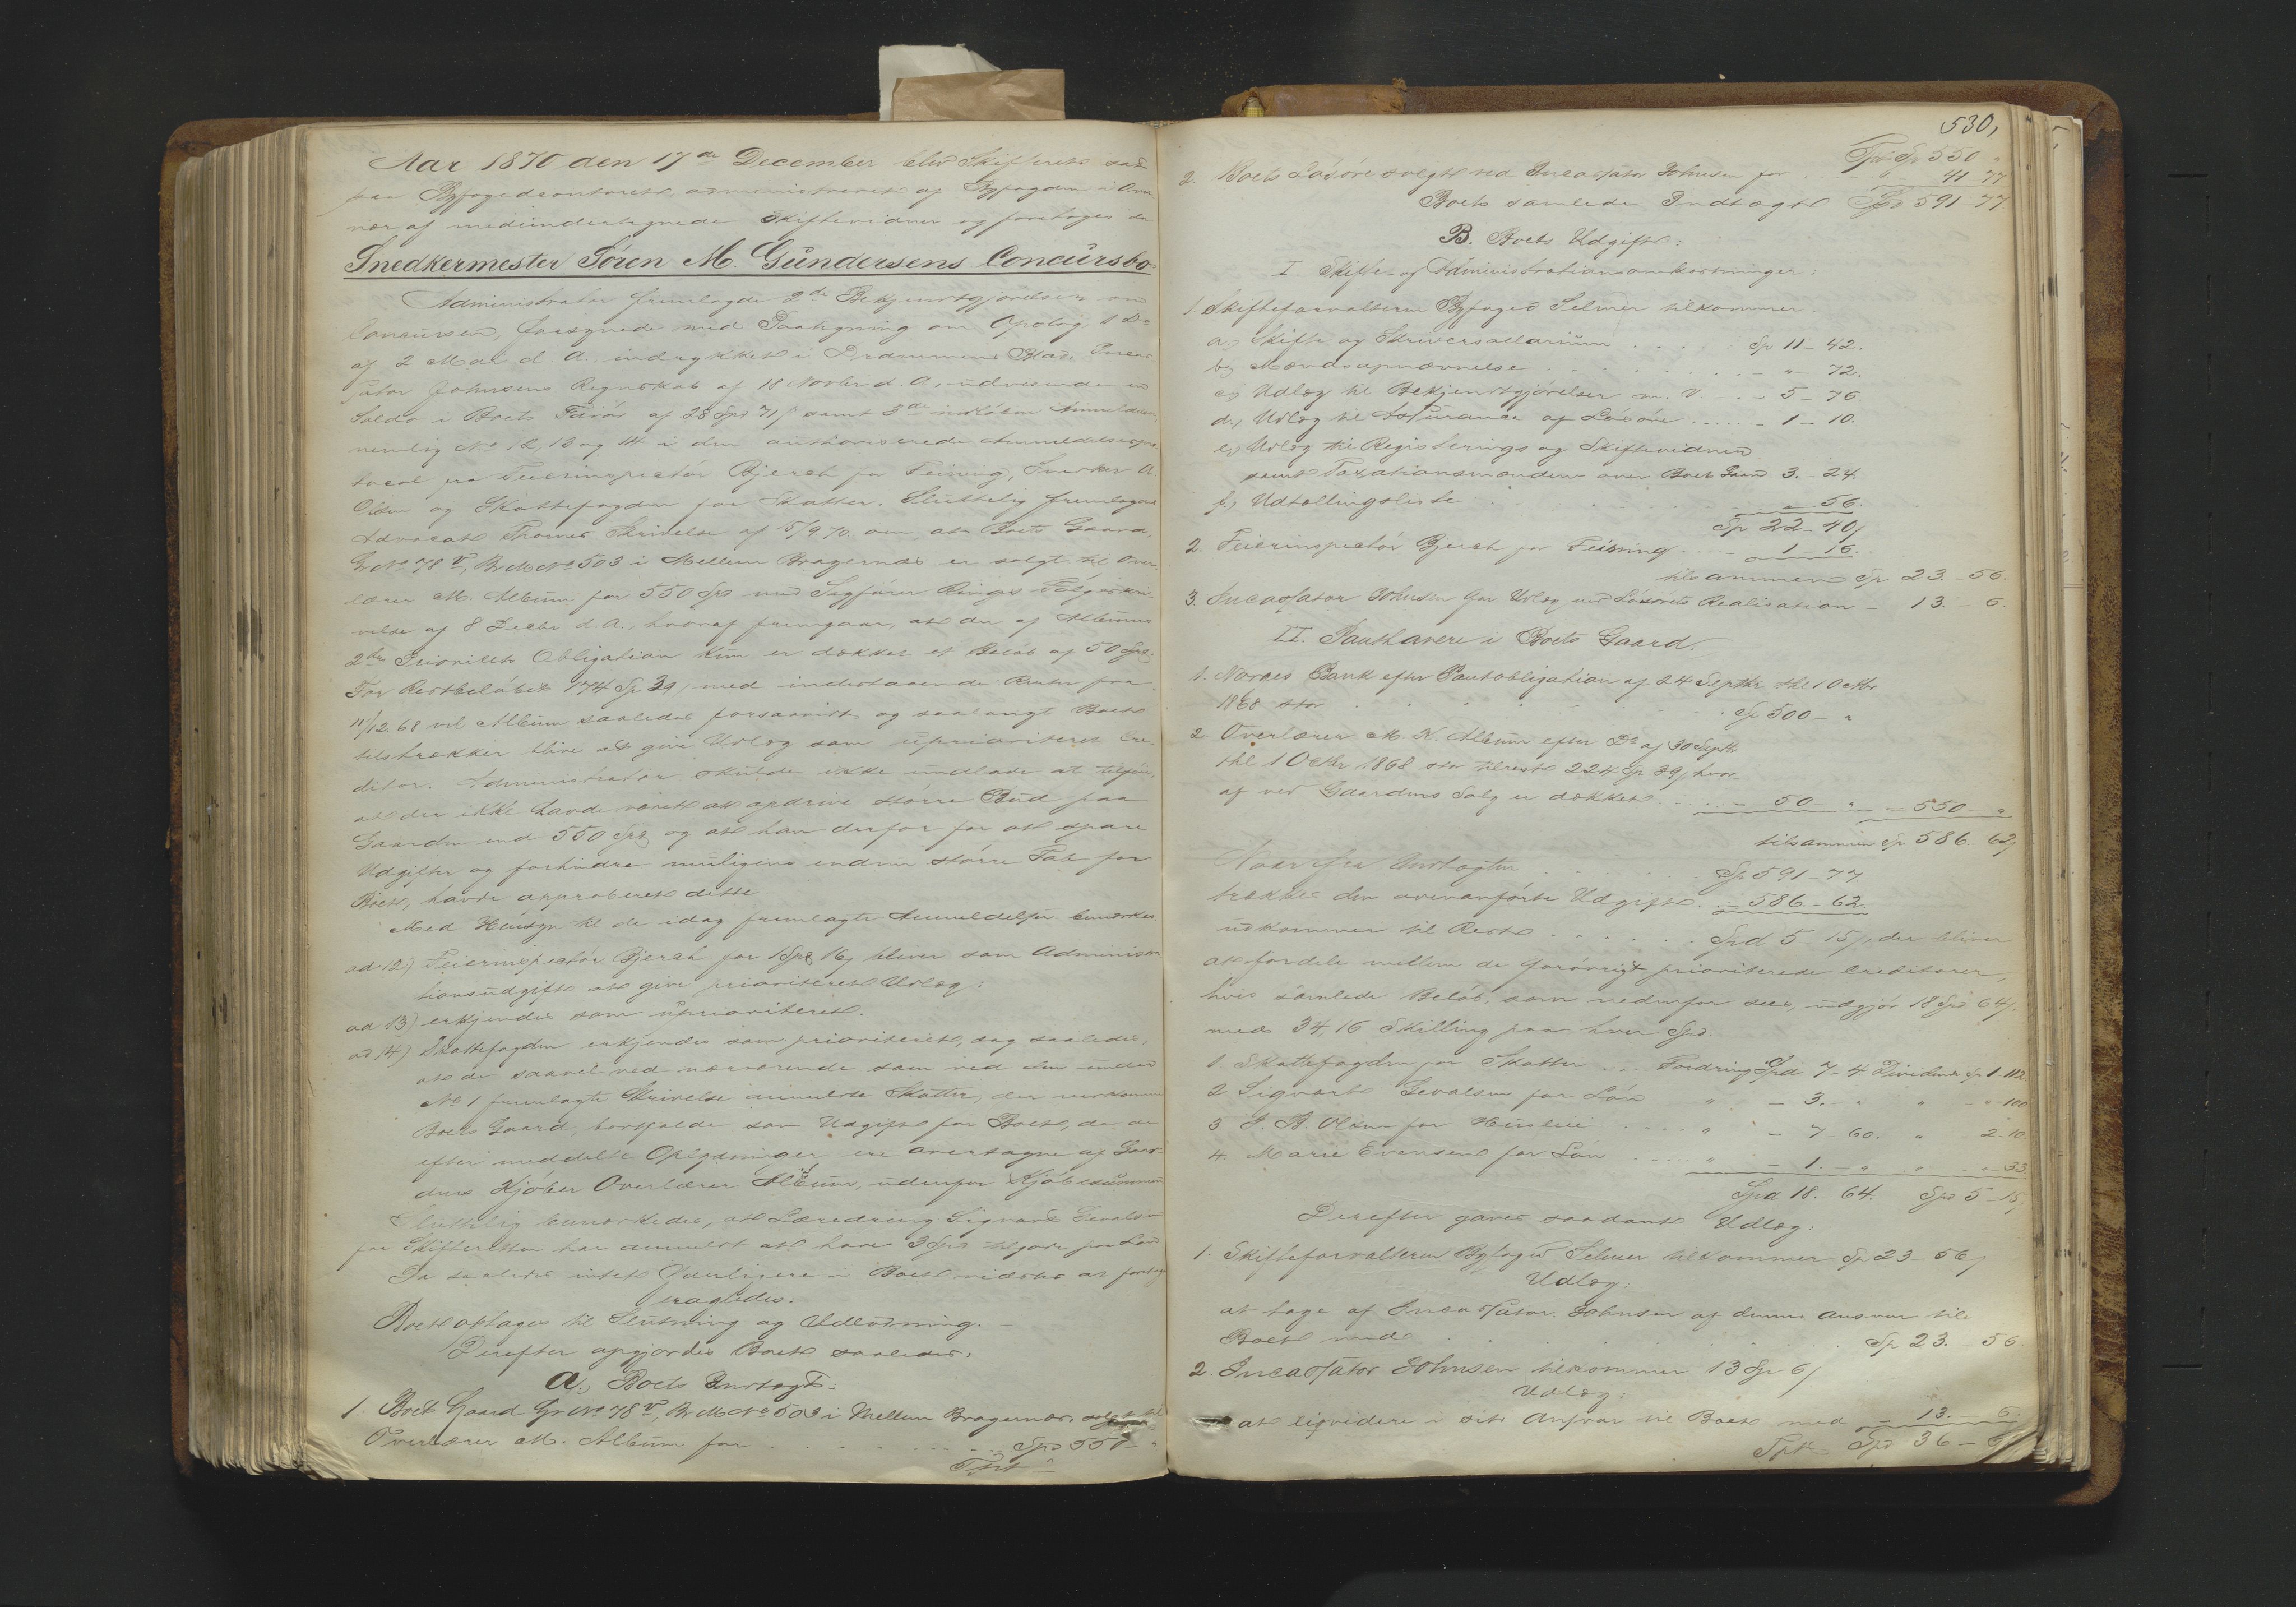 Aar 1870 den 17de December blev Skifteret sat
paa Byfogedcontoret, administreret af Byfogden i Over-
vær af medundertegnede Skiftevidner og foretoges da
Snedkermester Sören M. Gundersens Concursbo
Administrator fremlagde 2de Bekjendtgjörelser om
Concursen, forsynede med Paategning om Opslag, 1 Do
af 2 Mai d. A. indrykket i Drammens Blad, Incas-
sator Johnsens Regnskab af 18 Novbr d. A., udvisende en
Saldo i Boets Favör af 28 Spd 71 s samt 3de indlöbne Anmeldelser
nemlig No 12, 13 og 14 i den authoriserede Anmeldelsespro-
tocol fra Feierinspectör Bjerch for Feining, Snedker A.
Olsen og Skattefogden for Skatter. Sluttelig fremlagdes
Advocat Thornes Skrivelse af 5/9 70 om, at Boets Gaard,
Gr No 78 b, Br M No 503 i Mellem Bragernæs er solgt til Over-
lærer M. Album for 550 Spd med Sagförer Rings Fölgeskri-
velse af 8 Decbr d. A., hvoraf fremgaar, at der af Albums
2den Prioritets Obligation kun er dækket et Belöb af 50 Spd.
For Restbelöbet 174 Sp 39 s med indestaaende Renter fra
11/12 68 vil Album saaledes forsaavidt og saalangt Boet
tilstrækker blive at give Udlæg som uprioriteret Cre-
ditor. Administrator skulde ikke undlade at tilföie,
at der ikke havde været at opdrive större Bud paa
Gaarden end 550 Spd og at han derfor for at spare
Udgifter og forhindre muligens endnu större Tab for
Boet, havde approberet dette.
Med Hensyn til de idag fremlagte Anmeldelser bemærkes
ad 12) Feierinspectör Bjerch for 1 Spd 16 s bliver som Administra-
tionsudgift at give prioriteret Udlæg;
ad 13) erkjendes som uprioriteret.
ad 14) Skattefogden erkjendes som prioriteret, dog saaledes,
at de saavel ved nærværende som ved den under
No 1 fremlagte Skrivelse anmeldte Skatter, der vedkomme
Boets Gaard, bortfalde som Udgift for Boet, da de
efter meddelte Oplysninger ere overtagne af Gaar-
dens Kjöber Overlærer Album, udenfor Kjöbesummen
Sluttelig bemærkedes, at Læredreng Sigvart Gevalsen
for Skifteretten har anmeldt at have 3 Spd tilgode for Lön
Da saaledes intet Yderligere i Boet vidstes at foretage
eragtedes.
Boet optages til Slutning og Udlodning.
Derefter opgjordes Boet saaledes.
A, Boets Indtægt:
1. Boets Gaard Gr No 78 b, Br M No 503 i Mellem Bragernæs, solgt til
Overlærer M. Album for . . . . . . . Spd 550 - "
Tpt
530,
Tpt Sp 550 "
2. Boets Lösöre solgt ved Incassator Johnsen for . . - 41 77
Boets samlede Indtægt Spd 591 77
B. Boets Udgift:
I. Skifte- og Administrationsomkostninger:
1. Skifteforvalteren Byfoged Selmer tilkommer
a, Skifte og Skriversallarium . . . . . Sp 11 - 42.
b, Mændsopnævnelse . . . . . . - " - 72.
c, Udlæg til Bekjendtgjörelser m. V. . - 5 - 76
d, Udlæg til Assurance af Lösöre . . . . - 1 - 10.
e, Udlæg til Registerings og Skiftevidner
samt Taxationsmændene over Boets Gaard 3. - 24.
f, Udtællingsliste . . . . . . " 56.
Sp 22 - 40 s
2. Feierinspectör Bjerch for Feining . . . - 1 - 16.
tilsammen Sp 23. - 56.
3. Incassator Johnsen for Udlæg ved Lösörets Realisation - 13. - 6.
II. Panthavere i Boets Gaard.
1. Norges Bank efter Pantobligation af 24 Septbr thl 1 Octbr
1868 stor . . . . . . . Sp 500 - "
2. Overlærer M. K. Album efter Do af 30 Septbr
thl 1 Octbr 1868 stor tilrest 224 Sp 39 s, hvor-
af ved Gaardens Salg er dækket . . . - 50 - " - 550 - "
tilsammen Sp 586 - 62 s
Naar fra Indtægten . . . . . . Sp 591 - 77
trækkes den ovenanförte Udgift . - 586. - 62.
udkommer til Rest . . . . . . Spd 5 - 15 s, der bliver
at fordele mellem de forövrigt prioriterede Creditorer,
hvis samlede Belöb, som nedenfor sees, udgjör 18 Spd 64 s,
med 34,16 Skilling paa hver Spd.
1. Skattefogden for Skatter . . Fordring Spd 7 - 4 Dividende Sp 1 - 112.
2 Sigvart Gevalsen for Lön " - 3. - " " - " - 100
3 J. B. Olsen for Husleie . . . . " - 7 - 60. " - 2 - 10.
4. Marie Evensen for Lön . . . . . " - 1. - " " - " - 33
Spd 18. - 64. Spd 5 - 15 s
Derefter gaves saadant Udlæg:
1. Skifteforvalteren Byfoged Selmer tilkommer Sp 23 - 56 s
Udlæg:
at tage af Incassator Johnsen af dennes Ansvar til
Boet med . . . . . . . . . . Sp 23. - 56
2. Incassator Johnsen tilkommer 13 Sp 6 s
Udlæg:
at liqvidere i sit Ansvar til Boet med - 13. 6.
Tpt Spd 36 -